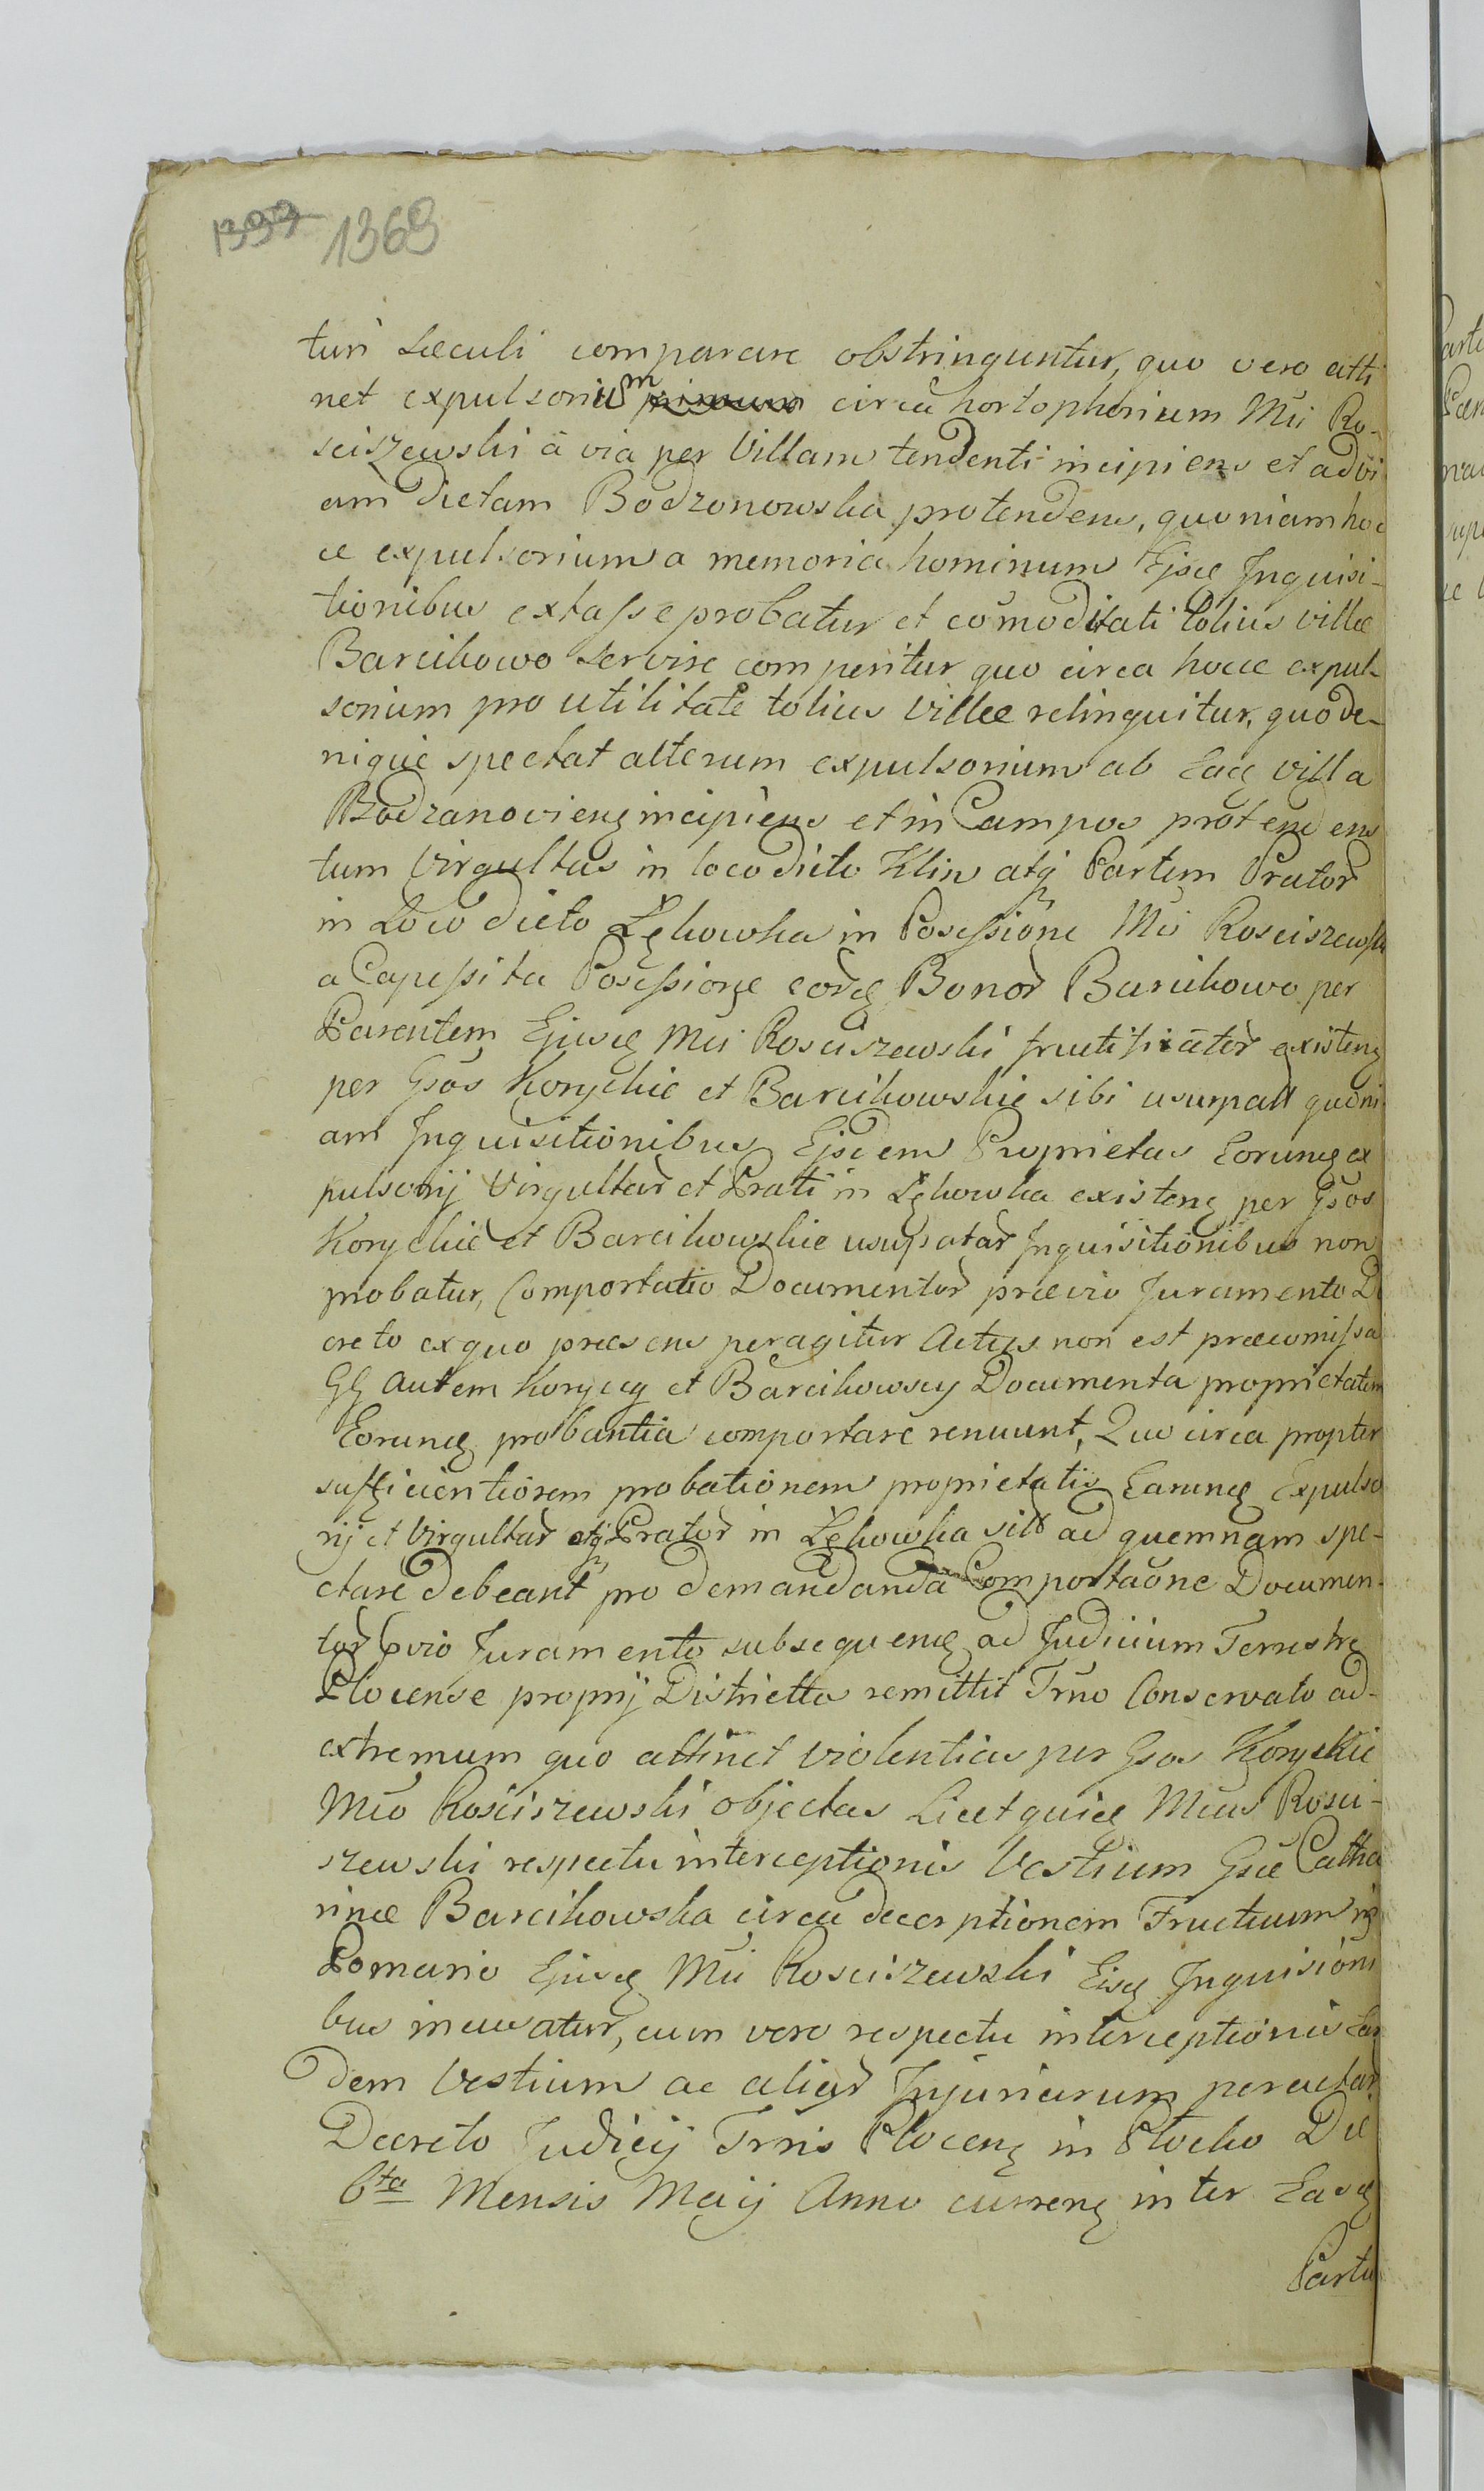 1399 1369
turi sæculi comparare obstringuntur, quo vero atti
net expulsorium circa hortophorium Mci Ro-
sciszewski à via per Villam tendenti incipiens et ad vi
am dictam Bodzonowska protendens, quoniam hoc
ce expulsorium a memoria hominum Ejsq Inquisi-
tionibus extasse probatur et comoditati totius villæ
Barcikowo servire comperitur quo circa hocce expul-
sorium pro utilitate totius Villæ relinquitur, quo de-
nique spectat alterum expulsorium ab Eadq villa
Bodzanovienq incipiens et in Campos protendens
tum Virgultas in loco dicto Klin atq Partem Prator
in Loco dicto Łękowka in Posessione Mci Rosciszewski
a Capessita Posessione eordq Bonor Barcikowo per
Parentem Ejusdq Mci Rosciszewski fructificator existenq
per Gsos Koryckie et Barcikowskie sibi usurpatt quoni
am Inquisitionibus Ejsdem Proprietas Eorundq ex
pulsorij Virgultar et Prati in Łękowka existenq per Gsos
Koryckie et Barcikowskie usupatar Inquisitionibus non
probatur, Comportatio Documentor prævio Juramento De
creto ex quo præsens peragitur Actus non est præcomissa
GG autem Koryccy et Barcikowscy Documenta proprietatem
Eorundq probantia comportare renuunt, Quo circa propter
sufficientiorem probationem proprietatis Earundq Expulso
rij et Virgultar atq Prator in Łękowka sitt ad quemnam spe-
ctare debeant pro demandanda Comportaone Documen-
tor pvio Juramento subsequendq ad Judicium Terrestre
Plocense proprij Districtus remittit Trno Conservato ad-
extremum quo attinet violentias per Gsos Koryckie
Mco Rosciszewski objectas Licet quidq Mcus Rosci-
szewski respectu interceptionis Vestium Gsæ Catha
rinæ Barcikowska circa decerptionem Fructuum in
Pomario Ejusdq Mci Rosciszewski Eisdq Inquisioni
bus incuvatur, cum vero respectu interceptionis Ear
dem Vestium ac aliar Injuriarum peractar
Decreto Judicij Trris Plocenq in Płocko Die
6ta Mensis Maij Anno currenq inter Easdq
Partes